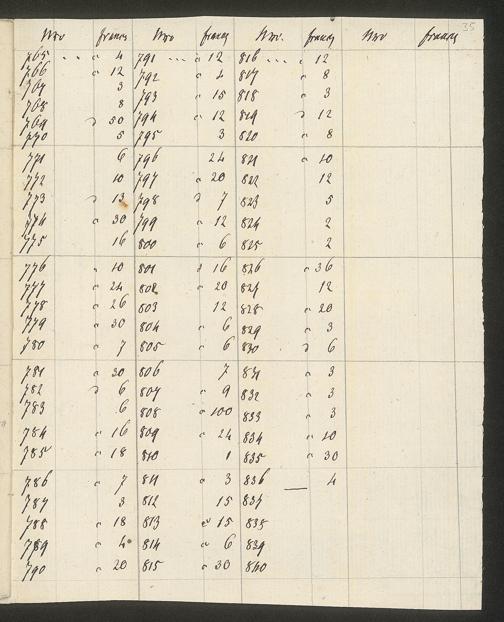 35
Nro francs Nro francs Nro. francs Nro francs
765 .. " 4 791 ... " 12 816 ... " 12
766 " 12 792 " 4 817 " 8
767 3 793 " 15 818 " 3
768 8 794 " 12 819 " 12
769 " 50 795 3 820 " 8
770 5
771 6 796 24 821 " 10
772 10 797 " 20 822 12
773 " 13 798 " 7 823 5
774 " 30 799 " 12 824 2
775 16 800 " 6 825 2
776 " 10 801 " 16 826 " 36
777 " 24 802 " 20 827 12
778 " 26 803 12 828 " 20
779 " 30 804 " 6 829 " 3
780 " 7 805 " 6 830 " 6
781 " 30 806 7 831 " 3
782 " 6 807 " 9 832 " 3
783 6 808 " 100 833 " 3
784 " 16 809 " 24 834 " 10
785 " 18 810 1 835 " 30
786 " 7 811 " 3 836 4
787 3 812 15 837
788 " 18 813 " 15 838
789 " 4 814 " 6 839
790 " 20 815 " 30 840